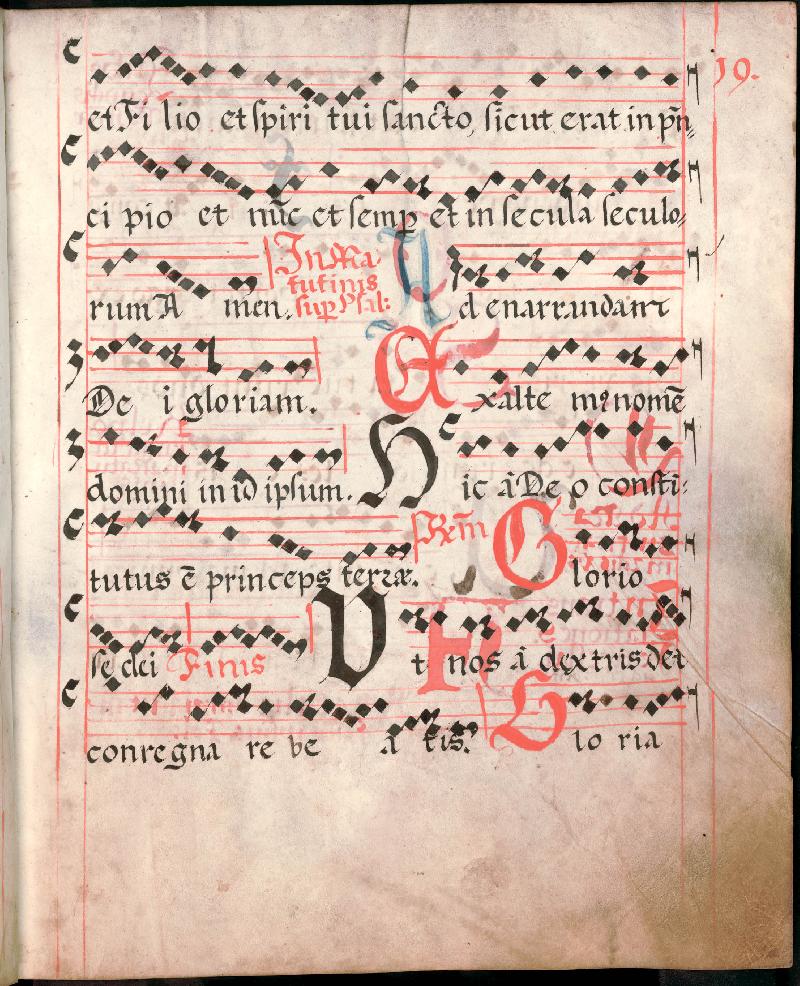 19.
et Fi lio et spiri tui sancto, sicut erat in pñ
ci pio et nũc et semp et in secula seculo
rum A men. In Ma tutinis sup psal: A d enarrandant
De i gloriam. E xalte mꝰ nomẽ
domini in id ipsum. H ic à De o consti:
tutus ẽ princeps terræ. G lorio
se dei Finis V t nos à dextris dei
conregna re be a tis. G lo ria